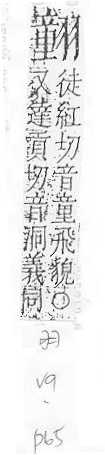 徒紅切音童飛貌○
又達貢切音洞義同
羽
v9
-
p65